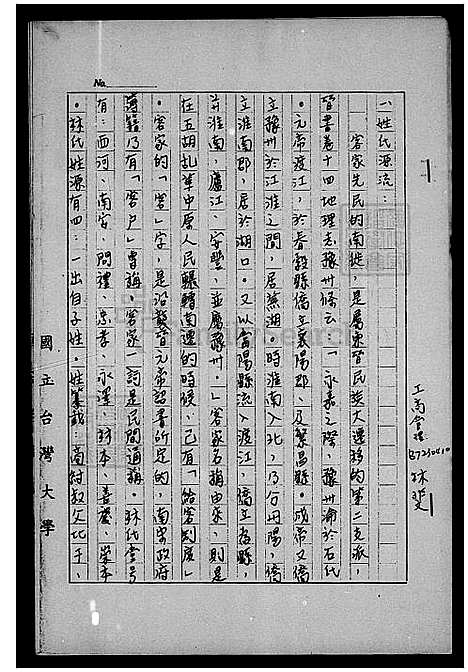 No.
一、姓氏源流：
客家先民的南徙，是屬東晉民族大遷移的第二支派，
晉書卷十四地理志豫州條云：「永嘉之際，豫州淪於石氏
。元帝渡江，於春穀縣僑立襄陽郡，及繁昌縣。成帝又僑
立豫州於江淮之間，居蕪湖。時淮南入北，乃分丹陽，僑
立淮南郡，居於湖口。又以當陽縣流入渡江，僑立為縣，
并淮南，廬江，安豐，並屬豫州。」客家名稱由來，則是
在五胡乱華中原人民輾轉南遷的時候，已有「給客制度」
。客家的「客」字，是沿襲晉元帝詔書所定的，南宋政府
簿籍乃有「客戶」專稱，客家一詞是民間通稱。林氏堂号
有：西河，南安，問禮，忠孝，永澤，林本，善慶，崇本
。林氏姓源有四：一出自子姓。姓纂載：商紂叔父比干，
工商管理
B7230410
林斐
國立台灣大學
FamilySearch